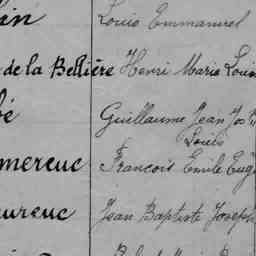 Louis Emmanuel
de la Bellière Henri Marie Louis
bé Guillaume Jean
Louis
mereuc François Emile Eug
ureuc Jean Baptiste Joseph